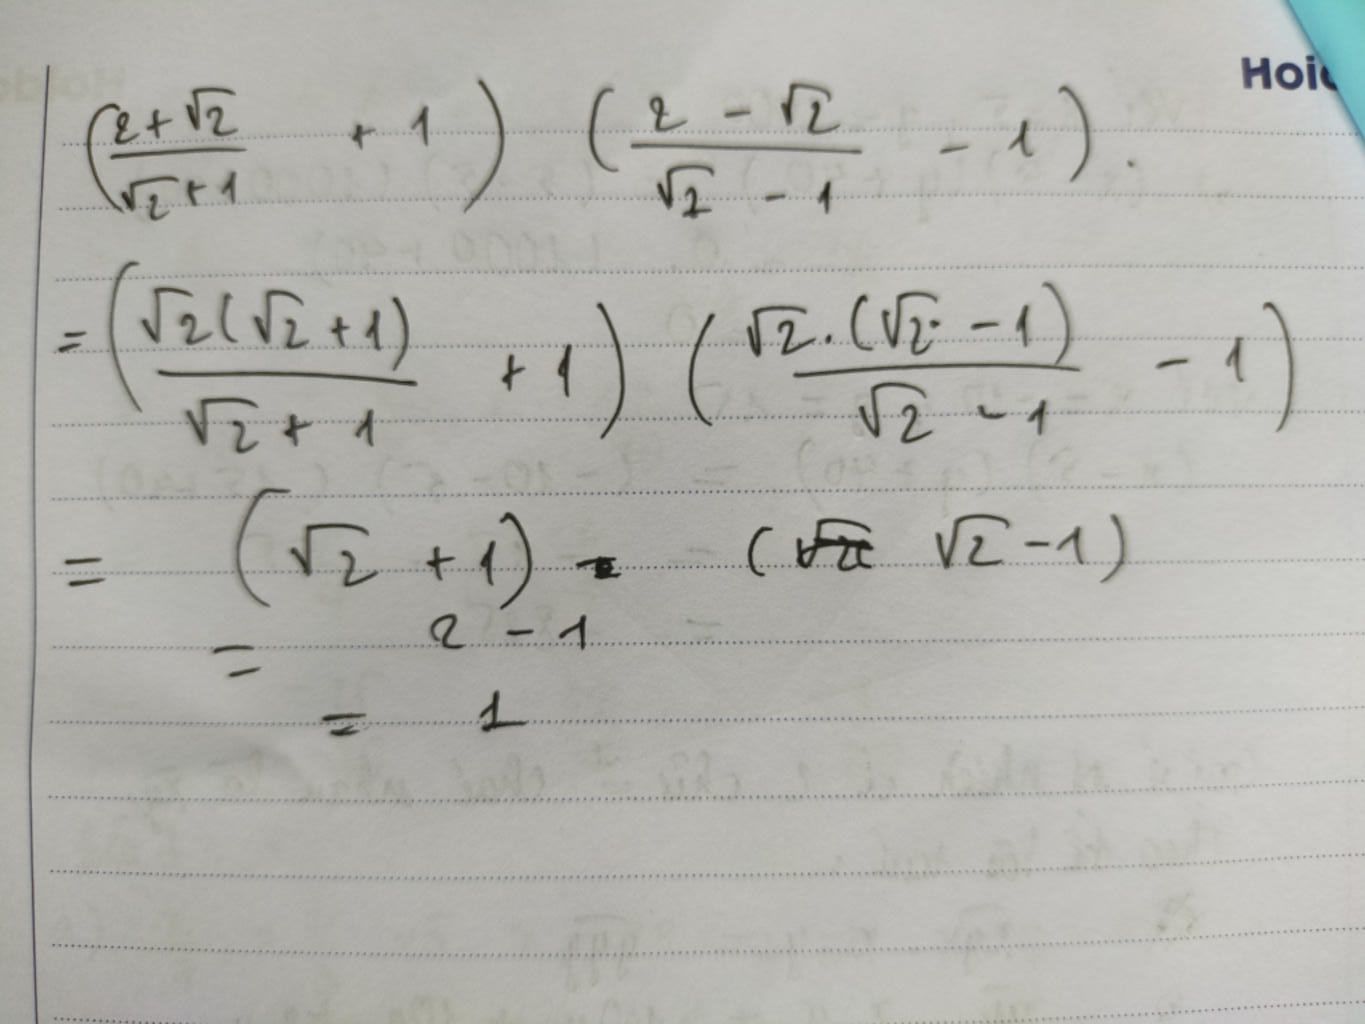 Hoi
(2+√2/√2+1 + 1) (2 - √2/√2 - 1 - 1).
= (√2(√2+1)/√2 + 1 + 1) (√2.(√2 - 1)/√2 - 1 - 1)
= (√2 + 1) - (√2 - 1)
= 2 - 1
= 1